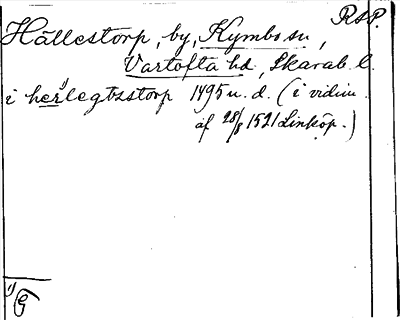 RAP.
Hällestorp, by, Kymbo sn,
Vartofta hd, Skarab. l.
i herlegtzstorp 1495 u. d. (i vidim.
af 28/8 1521 Linköp.)
1)